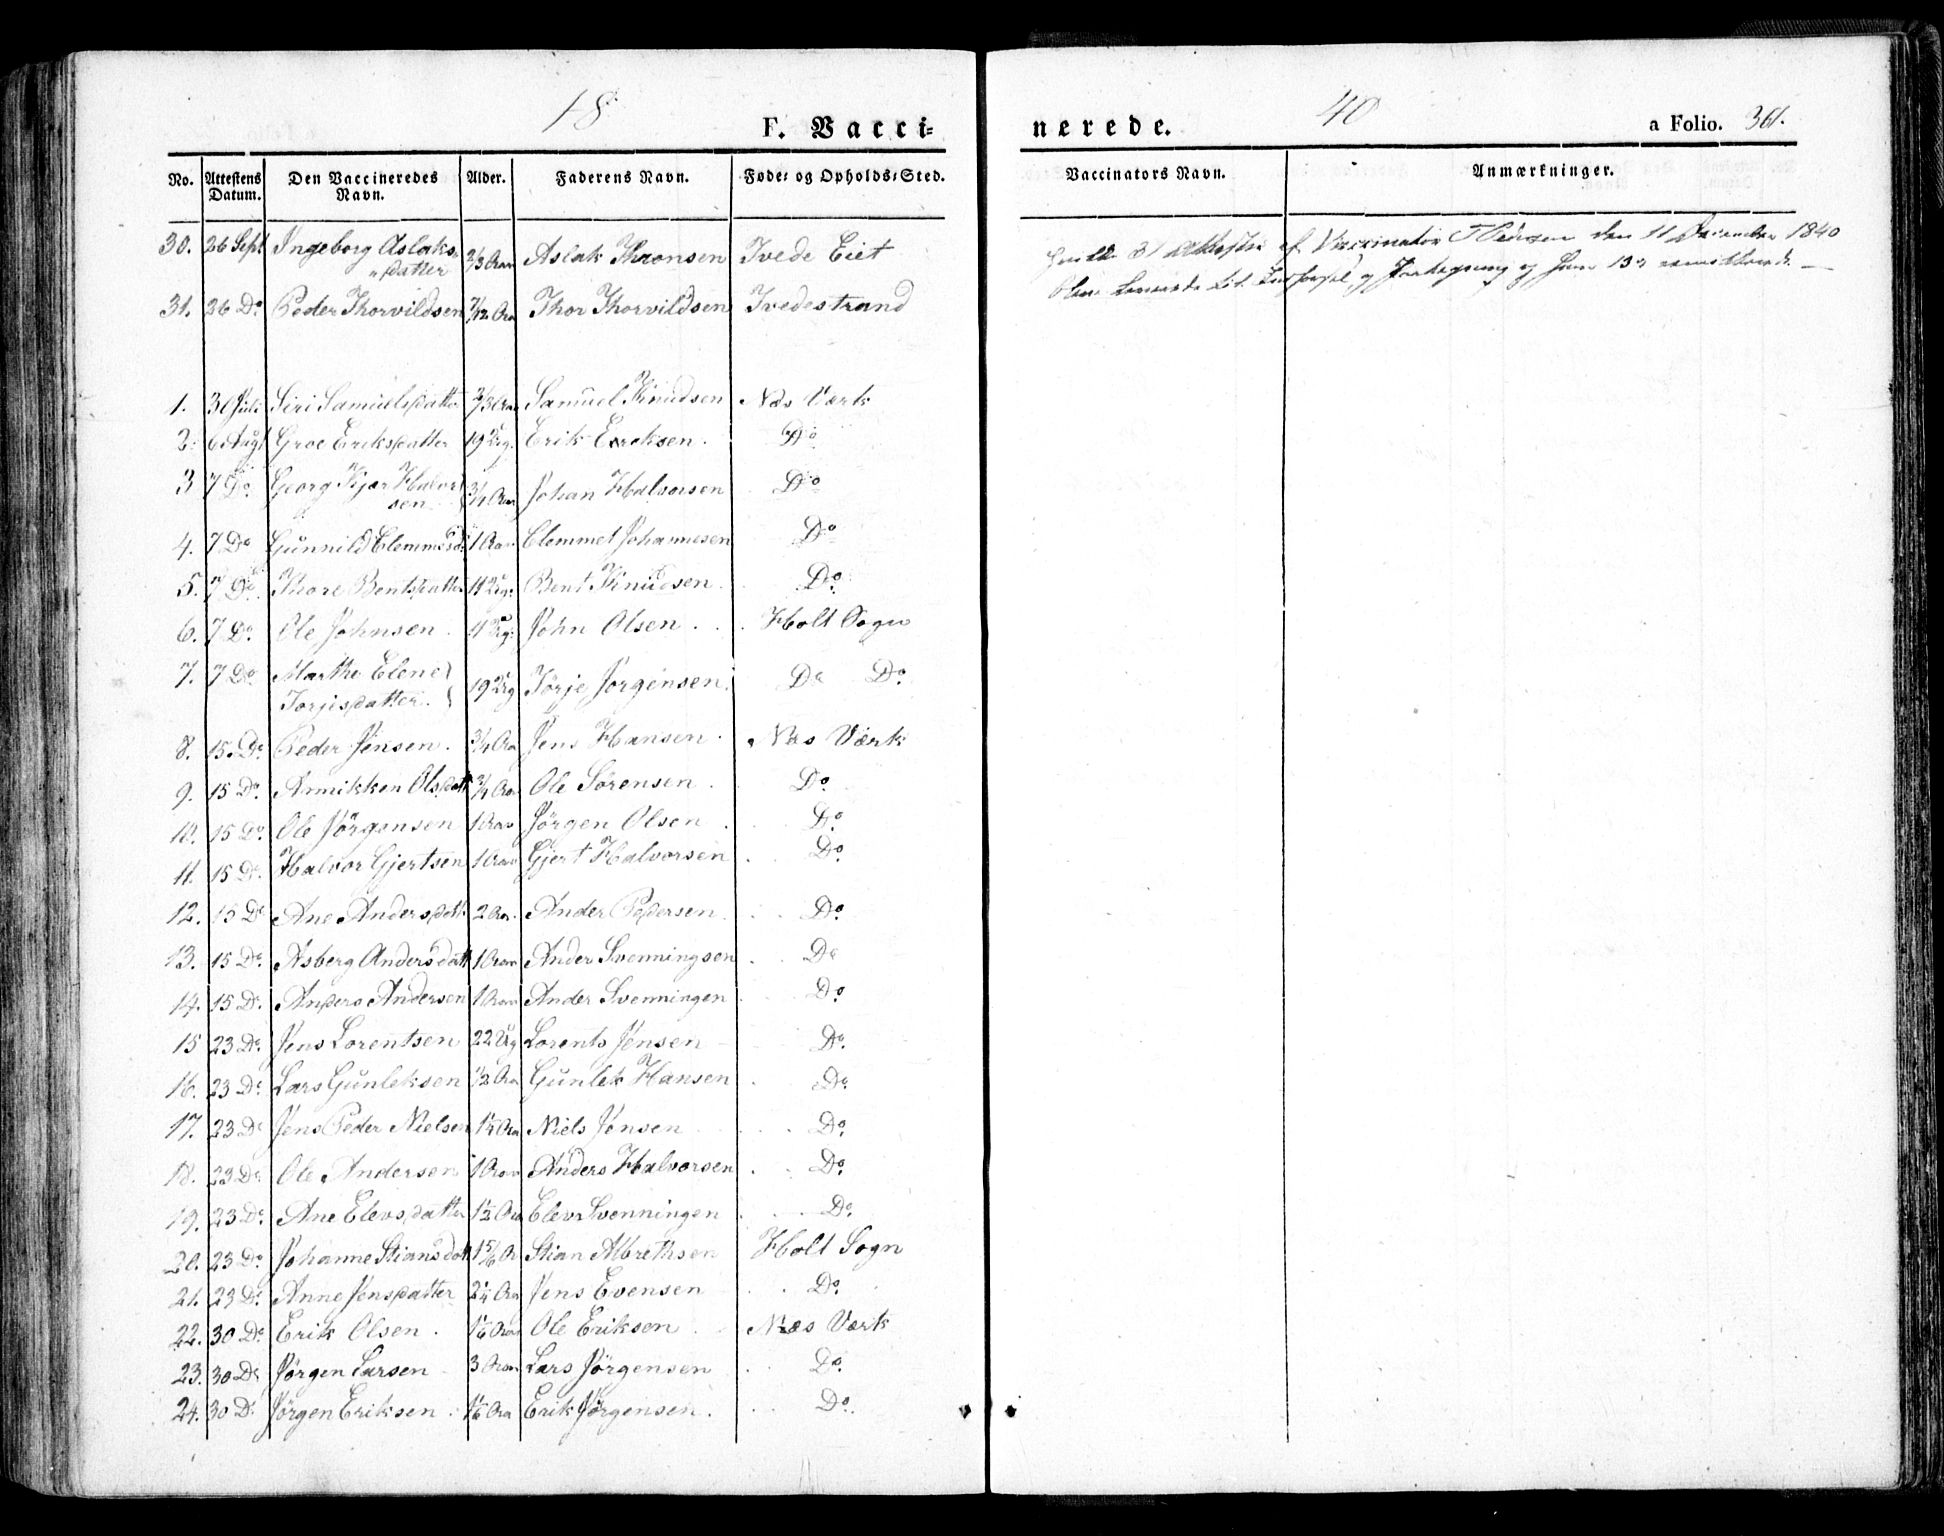 18 40
F. Vacci= nerede. a Folio. 361.
No. Attestens Datum. Den Vaccineredes Navn. Alder. Faderens Navn. Føde= og Opholds=Sted. Vaccinators Navn. Anmærkninger.
30. 26 Sept Ingeborg Aslaks= 2/3 Aar Aslak Thronsen Tvede Eiet
"datter
31. 26 Do Peder Thorvildsen 7/12 Aar Thor Thorvildsen Tvedestrand
31 Attester af Vaccinator Pedersen den 11 December 1840
1. 30 Juli Siri Samuelsdatter 2/3 Aar Samuel Knudsen Næs Værk
2. 6 Augt Groe Eriksdatter 19 Ug. Erik Ericksen. Do
3 7 Do. Georg Kjær Halvor 3/4 Aar Johan Halvorsen Do
sen
4. 7 Do Gunnild Clemmetsd. 1 Aar Clemmet Johannesen Do
5. 7 Do. Thore Bentsdatter 11 Ug. Bent Knudsen. Do.
6. 7 Do. Ole Johnsen. 11 Ug. John Olsen. Holt Sogn
7. 7 Do Marthe Elene 19 Ug Törje Jorgensen. Do Do.
Torjisdatter.
8. 15. Do. Peder Jensen. 3/4 Aar Jens Hansen. Næs Værk
9. 15 Do. Annikken Olsdatt 3/4 Aar Ole Sörensen. Do.
10. 15 Do. Ole Jörgensen 1 Aar Jörgen Olsen. Do.
11. 15 Do. Halvor Gjertsen 1 Aar Gjert Halvorsen. Do.
12. 15 Do Ane Andersdatt. 2 Aar. Ander Pedersen. Do.
13. 15 Do. Asberg Andersdatt 1 Aar Ander Svenningsen. Do
14. 15 Do. Anders Andersen 1 Aar Ander Svenningen. Do.
15 23 Do. Jens Lorentsen 22 Ug Lorents Jensen Do.
16. 23 Do. Lars Gunleksen 1/2 Aar Gunlek Hansen. Do.
17. 23 Do Jens Peder Nielsen 1 1/4 Aar Niels Jensen Do.
18. 23 Do. Ole Andersen 1 Aar Anders Halvorsen. Do.
19. 23 Do. Ane Elevsdatter 1 1/2 Aar Elev Svenningen. Do.
20. 23 Do. Johanne Stiansdatt 1 5/6 Ar Stian Albrethsen Holt Sogn
21. 23 Do. Anne Jensdatter 2 1/4 Aar Jens Evensen Do.
22. 30 Do. Erik Olsen. 1 1/6 Aar Ole Eriksen. Næs Værk
23. 30 Do. Jörgen Larsen 3 Aar Lars Jörgensen. Do.
24. 30 Do. Jörgen Eriksen. 1 1/6 Aar Erik Jörgensen. Do.